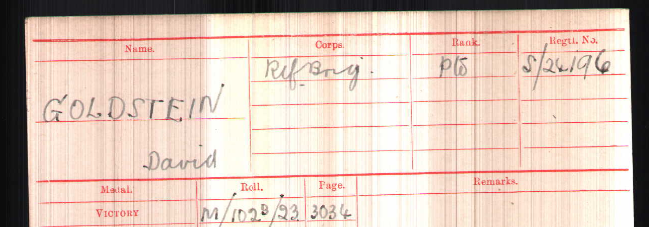 Name. Corps. Rank. Regtl. No.
Rif. Brig. Pte S/24196
GOLDSTEIN
David
Medal. Roll. Page. Remarks.
VICTORY M/102B/23 3034